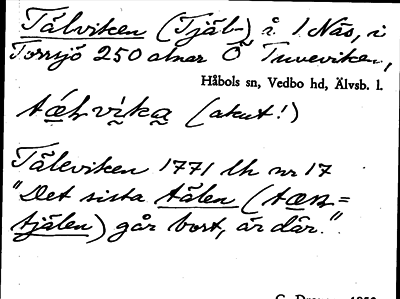 Tålviken (Tjäl-) å. 1. Näs, i
Torrsjö 250 alnar Ö Tuveviken,
Håbols sn, Vedbo hd, Älvsb. l.
(akut!)
Tåleviken 1771 lh nr 17
"Det sista tålen (
tjälen) går bort, är där."